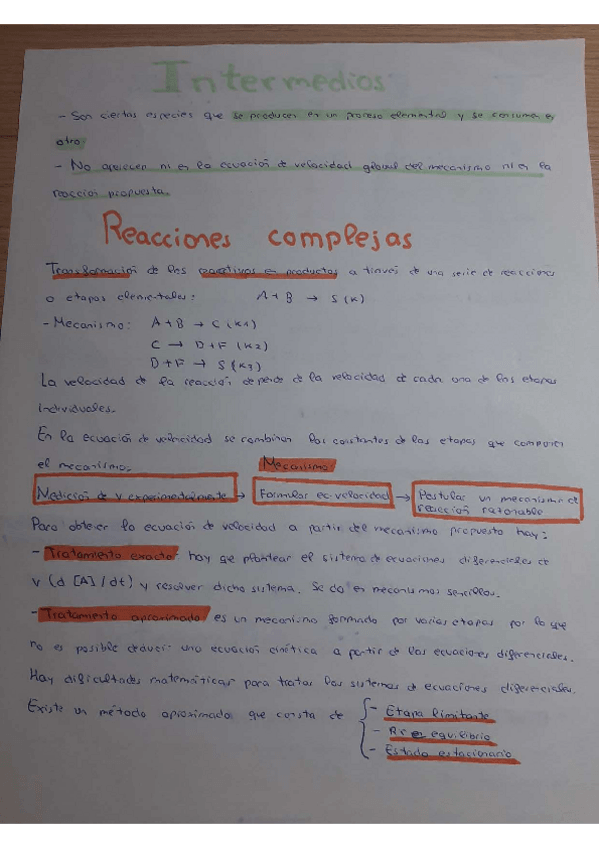 Intermedios
- Son ciertas especies que se producen en un proceso elemental y se consumen en
otro.
- No aparecen ni en la ecuación de velocidad global del mecanismo ni en la
reacción propuesta.
Reacciones complejas
Transformación de los reactivos en productos a través de una serie de reacciones
o etapas elementales: A + B → S (K)
- Mecanismo: A + B → C (K1)
C → D + F (K2)
D + F → S (K3)
La velocidad de la reacción depende de la velocidad de cada una de las etapas
individuales.
En la ecuación de velocidad se combinan las constantes de las etapas que componen
el mecanismo. Mecanismo
Medición de v experimentalmente → Formular ec. velocidad → Postular un mecanismo de
reacción razonable
Para obtener la ecuación de velocidad a partir del mecanismo propuesto hay:
- Tratamiento exacto: hay que plantear el sistema de ecuaciones diferenciales de
v (d [A] / dt) y resolver dicho sistema. Se da en mecanismos sencillos.
- Tratamiento aproximado es un mecanismo formado por varias etapas por lo que
no es posible deducir una ecuación cinética a partir de las ecuaciones diferenciales.
Hay dificultades matemáticas para tratar los sistemas de ecuaciones diferenciales.
Existe un método aproximado que consta de { - Etapa limitante
- Rc en equilibrio
- Estado estacionario